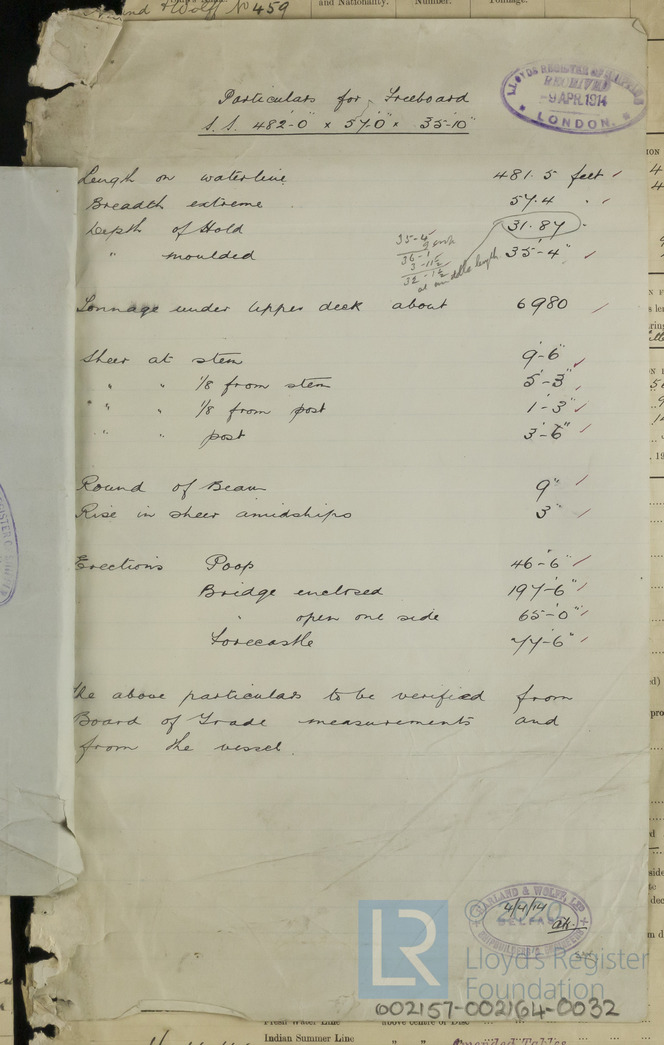 and Wolff No 459
and Nationality. Number. Tonnage.
LLOYDS REGISTER OF SHIPPING
RECEIVED
-9 APR. 1914
LONDON.
Particulars for Freeboard
S.S. 482-0" × 57-0" × 35-10"
Length on waterline 481.5 feet
Breadth extreme 57.4 "
Depth of Hold 31.87 "
" moulded 35-4"
35-4
36-1
3-11½
32-1½
at middle length
Tonnage under Upper deck about 6980
Sheer at stem 9-6"
" " 1/8 from stem 5-3"
" " 1/8 from post 1-3"
" " post 3-6"
Round of Beam 9"
Rise in sheer amidships 3"
Erections Poop 46-6"
Bridge enclosed 197-6"
" open one side 65-0"
Forecastle 77-6"
The above particulars to be verified from
Board of Trade measurements and
from the vessel.
HARLAND & WOLFF, LTD
4/4/14
BELFAST
SHIPBUILDERS & ENGINEERS
© 2020
LR
Lloyd's Register
Foundation
002157-002164-0032
Fresh Water Line above centre of Disc
Indian Summer Line " "
Amended Tables